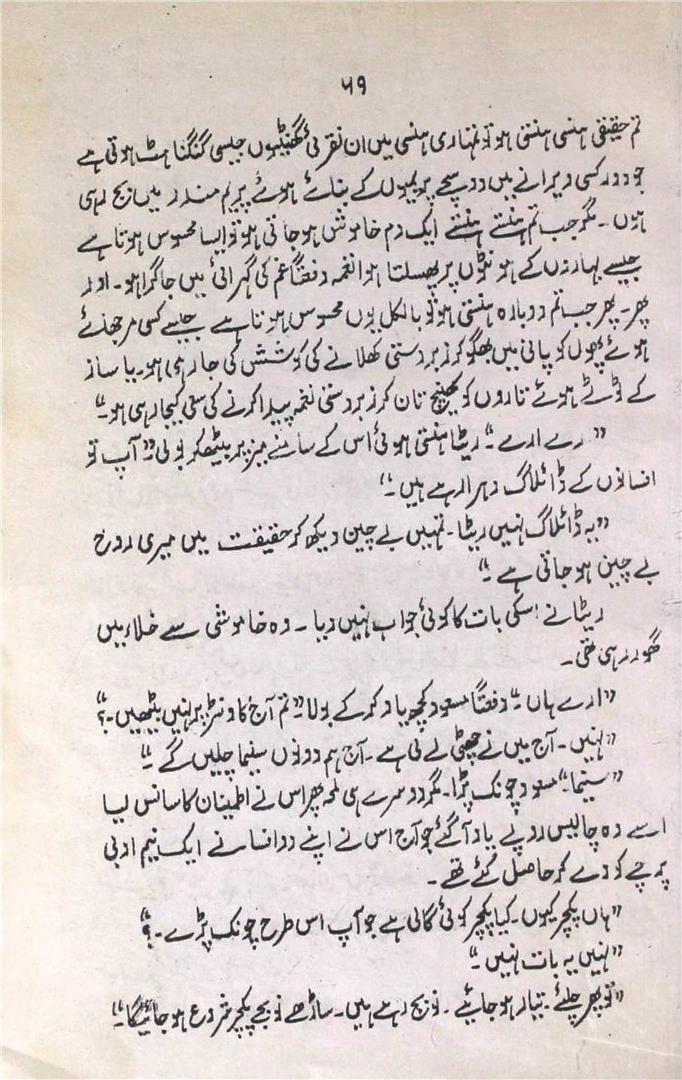 ۶۹
تم حقیقی ہنسی ہنستی ہو تو تمہاری ہنسی میں ان نقرئی گھنٹیوں جیسی گنگناہٹ ہوتی ہے
جو دور کسی ویرانے میں دو سچے پریمیوں کے بنائے ہوئے پریم مندر میں بج رہی
ہوں۔ مگر جب تم ہنستے ہنستے ایک دم خاموش ہو جاتی ہو تو ایسا محسوس ہوتا ہے
جیسے بہاروں کے ہونٹوں پر پھسلتا ہوا نغمہ دفعتاً غم کی گہرائی میں جا گرا ہو۔ اور
پھر۔ پھر جب تم دوبارہ ہنستی ہو تو بالکل یوں محسوس ہوتا ہے جیسے کسی مرجھائے
ہوئے پھول کو پانی میں بھگو کر زبردستی کھلانے کی کوشش کی جا رہی ہو۔ یا ساز
کے ٹوٹے ہوئے تاروں کو کھینچ تان کر زبردستی نغمہ پیدا کرنے کی سعی کیجا رہی ہو۔“
”ارے ارے۔“ ریٹا ہنستی ہوئی اس کے سامنے میز پر بیٹھ کر بولی۔ ”آپ تو
افسانوں کے ڈائلاگ دہرا رہے ہیں۔“
”یہ ڈائلاگ نہیں ریٹا۔ تمہیں بے چین دیکھ کر حقیقت میں میری روح
بے چین ہو جاتی ہے۔“
ریٹا نے اسکی بات کا کوئی جواب نہیں دیا۔ وہ خاموشی سے خلاء میں
گھور رہی تھی۔
”ارے ہاں۔“ دفعتاً مسعود کچھ یاد کر کے بولا۔ ”تم آج کاونٹر پر نہیں بیٹھیں۔؟“
”نہیں۔ آج میں نے چھٹی لے لی ہے۔ آج ہم دونوں سینما چلیں گے۔“
”سینما۔“ مسعود چونک پڑا۔ مگر دوسرے ہی لمحہ پھر اس نے اطمینان کا سانس لیا
اسے وہ چالیس روپے یاد آ گئے جو آج اس نے اپنے دو افسانے ایک نیم ادبی
پرچے کو دے کر حاصل کئے تھے۔
”ہاں پکچر کیوں۔ کیا پکچر کوئی گالی ہے جو آپ اس طرح چونک پڑے۔؟“
”نہیں یہ بات نہیں۔“
”تو پھر چلئے۔ تیار ہو جایئے۔ نو بج رہے ہیں۔ ساڑھے نو بجے پکچر شروع ہو جائیگا۔“